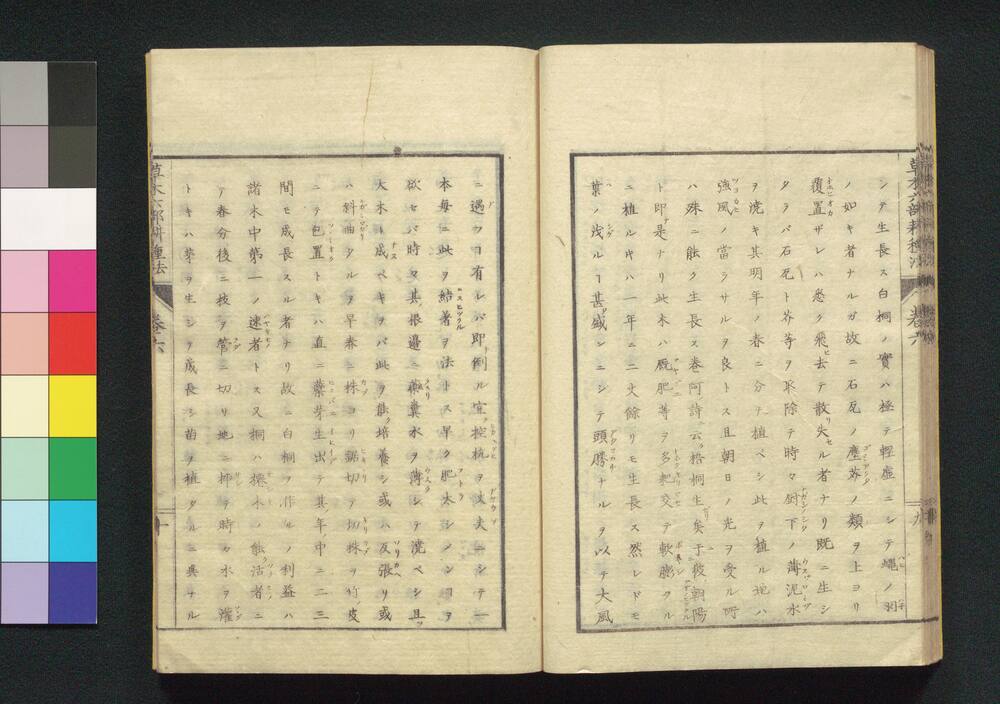 シテ生長ス白桐ノ實ハ極テ輕虚ニシテ蠅ノ羽
ノ如キ者ナルガ故ニ石瓦ノ塵芥ノ類ヲ上ヨリ
覆置ザレハ悉ク飛去テ散リ失セル者ナリ既ニ生シ
タラバ石瓦ト芥等ヲ取除テ時々厨下ノ薄泥水
ヲ澆キ其明年ノ春ニ分チ植ベシ此ヲ植ル地ハ
強風ノ當ラサルヲ良トス且朝日ノ光ヲ受ル所
ハ殊ニ能ク生長ス巻阿ノ詩ニ云ク梧桐生矣于彼朝陽
ト即チ是ナリ此木ハ厩肥等ヲ多ク耙交テ軟膨タル
ニ植ルキハ一年ニ二丈餘リモ生長ス然レドモ
葉ノ茂ルヿ甚盛ンニシテ頭勝ナルヲ以テ大風
草木六部耕種法 巻六
ニ遇フコ有レバ即倒ル宜ク控杭ヲ丈夫ニシテ一
本毎ニ此ヲ結著ヲ法トス早ク肥太シメンヿヲ
欲セバ時々其根邊ニ糞水ヲ薄シテ澆ベシ且ツ
大木ト成ベキヲバ此ヲ能ク培養シ或ハ反張リ或
ハ斜曲タルヲ早春ニ株ヨリ鋸切テ切株ヲ竹皮
ニテ包置トキハ直ニ蘖芽生出テ其年ノ中ニ二三
間モ成長スル者ナリ故ニ白桐ヲ作ルノ利益ハ
諸木中第一ノ速者トス又桐ハ標木ノ能活者ニ
テ春分後ニ枝ヲ管ニ切リ地ニ挿テ時々水ヲ灌
トキハ芽ヲ生シテ成長シ苗ヲ植タルニ異ナル
草木六部耕種法 巻六 十